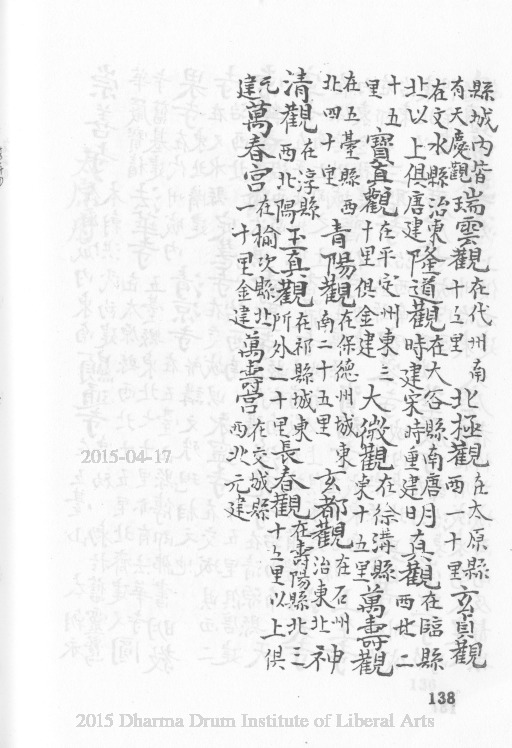 縣城內皆有天慶觀瑞雲觀在代州南十五里北極觀在太原縣西一十里玄真觀
在文水縣治東北以上俱唐建隆道觀在大谷縣南唐時建宋時重建明真觀在臨縣西廿二
十五里寶真觀在平定州東三十里俱金建大微觀在徐溝縣東十五里萬壽觀
在五臺縣西北四十里青陽觀在保德州城東南二十五里玄都觀在石州治東北神
清觀在淳縣西北隅玉真觀在祁縣城東所外二十里長春觀在壽陽縣北三十五里以上俱
元建萬春宮在榆次縣北十里金建萬壽宮在交城縣西北元建
2015-04-17
138
2015 Dharma Drum Institute of Liberal Arts